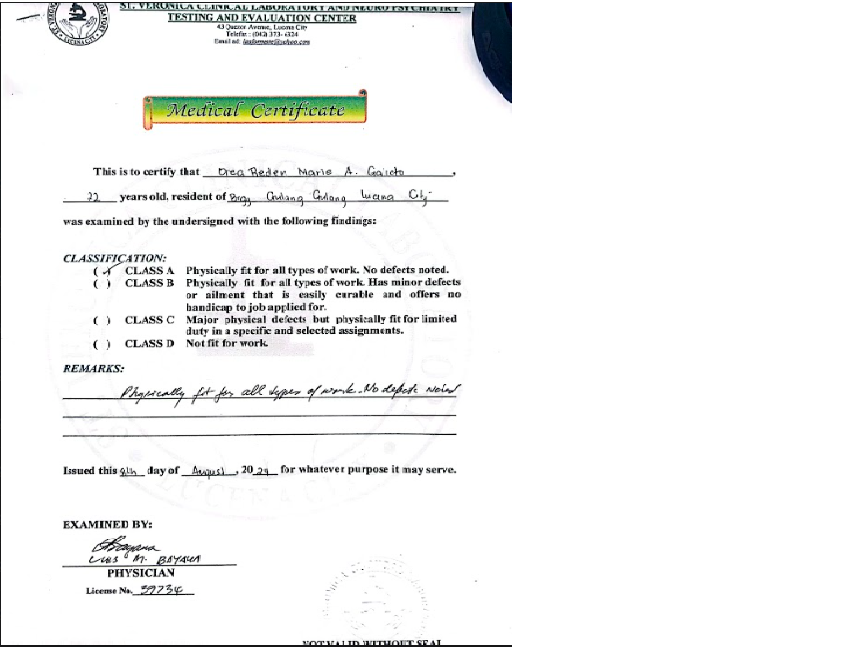 ST. VERONICA CLINICAL LABORATORY AND NEURO PSYCHIATRY
TESTING AND EVALUATION CENTER
43 Quezon Avenue, Lucena City
Telefax : (042) 373- 6324
Email ad:
Medical Certificate
This is to certify that Drea Reden Marie A. Garcia ,
22 years old, resident of Brgy Gulang Gulang Lucena City
was examined by the undersigned with the following findings:
CLASSIFICATION:
( ✓ ) CLASS A Physically fit for all types of work. No defects noted.
( ) CLASS B Physically fit for all types of work. Has minor defects
or ailment that is easily curable and offers no
handicap to job applied for.
( ) CLASS C Major physical defects but physically fit for limited
duty in a specific and selected assignments.
( ) CLASS D Not fit for work.
REMARKS:
Physically fit for all types of work. No defects noted
Issued this 9th day of August , 20 24 for whatever purpose it may serve.
EXAMINED BY:
LUIS M. BAYANA
PHYSICIAN
License No. 39734
NOT VALID WITHOUT SEAL